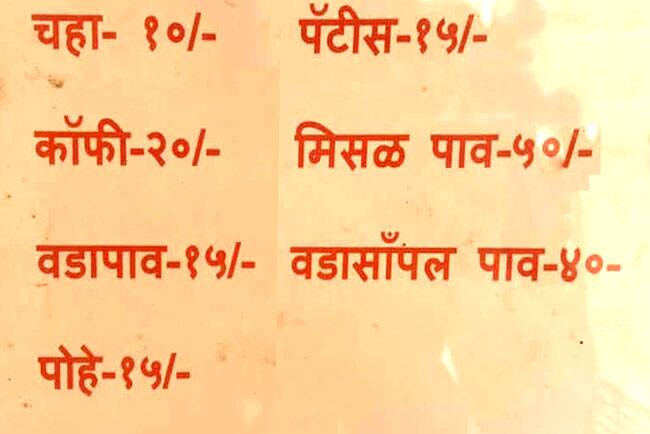 चहा- १०/- पॅटीस-१५/-
कॉफी-२०/- मिसळ पाव-५०/-
वडापाव-१५/- वडासाँपल पाव-४०-
पोहे-१५/-